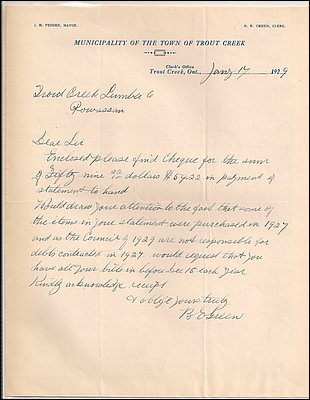 J. H. FEDDEN, MAYOR. B. E. GREEN, CLERK.
MUNICIPALITY OF THE TOWN OF TROUT CREEK
Clerk's Office
Trout Creek, Ont., Jany 17 1929
Trout Creek Lumber Co
Powassan
Dear Sir
Enclosed please find Cheque for the sum
of Fifty nine dollars $59.22 in payment of
statement to hand
Would draw your attention to the fact that some of
the items in your statement were purchased in 1927
and as the Council of 1929 are not responsible for
debts contracted in 1927 would request that you
have all your bills in before Dec 15 each year
Kindly acknowledge receipt
& oblige yours truly
B E Green